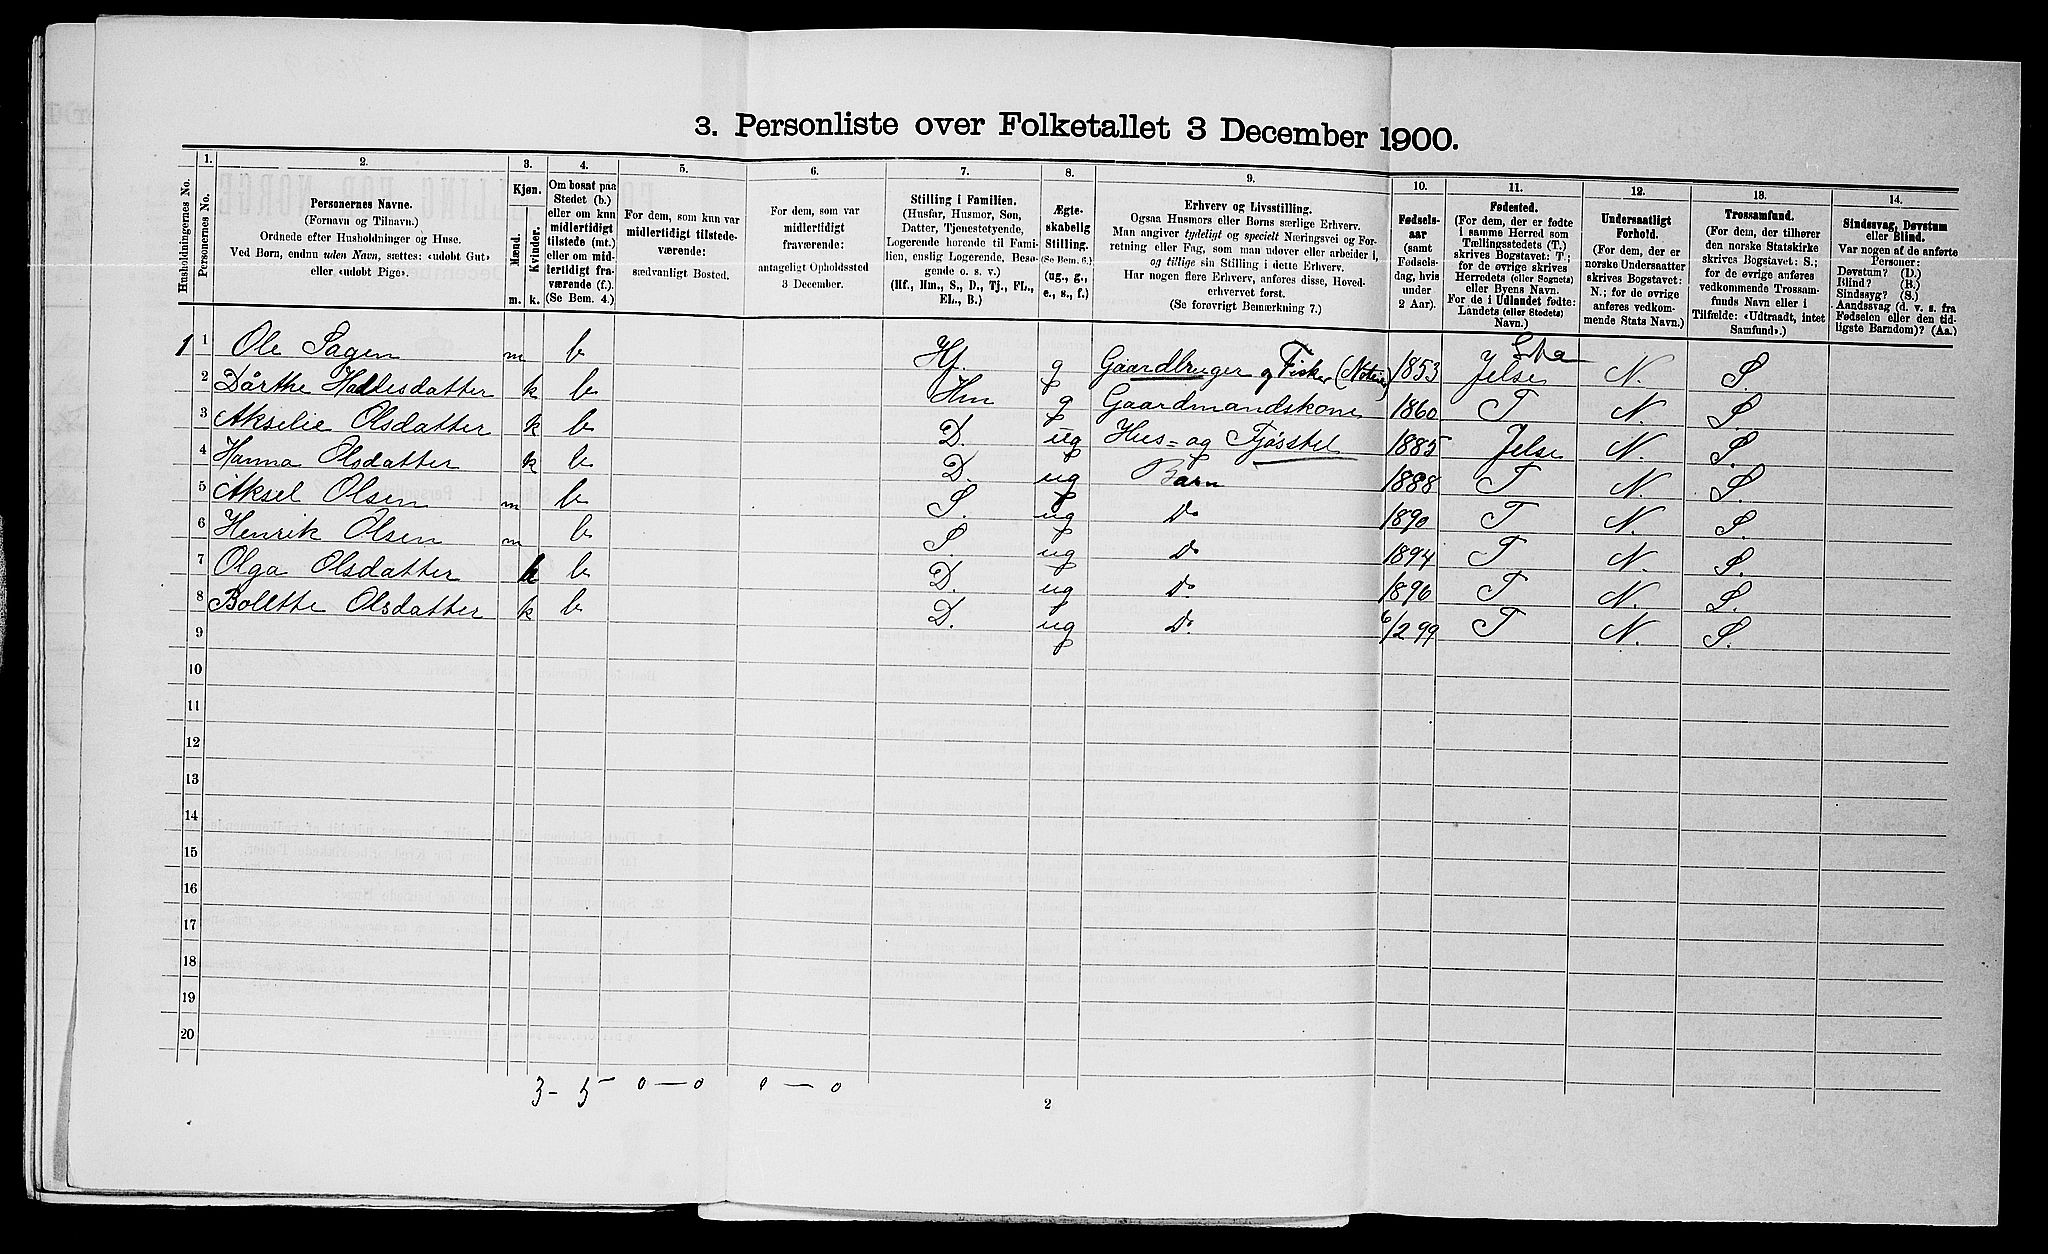 3. Personliste over Folketallet 3 December 1900.
1. 2. 3. 4. 5. 6. 7. 8. 9. 10. 11. 12. 13. 14.
Husholdningernes No.
Personernes No.
Personernes Navne.
(Fornavn og Tilnavn.)
Ordnede efter Husholdninger og Huse.
Ved Børn, endnu uden Navn, sættes: «udøbt Gut»
eller «udøbt Pige».
Kjøn.
Mænd. Kvinder.
m. k.
Om bosat paa
Stedet (b.)
eller om kun
midlertidigt
tilstede (mt.)
eller om mid-
lertidigt fra-
værende (f.).
(Se Bem. 4.)
For dem, som kun var
midlertidigt tilstede-
værende:
sædvanligt Bosted.
For dem, som var
midlertidigt
fraværende:
antageligt Opholdssted
3 December.
Stilling i Familien.
(Husfar, Husmor, Søn,
Datter, Tjenestetyende,
Logerende hørende til Fami-
lien, enslig Logerende, Besø-
gende o. s. v.)
(Hf., Hm., S., D., Tj., FL.,
EL., B.)
Ægte-
skabelig
Stilling.
(Se Bem. 6.)
(ug., g.,
e., s., f.)
Erhverv og Livsstilling.
Ogsaa Husmors eller Børns særlige Erhverv.
Man angiver tydeligt og specielt Næringsvei og For-
retning eller Fag, som man udøver eller arbeider i,
og tillige sin Stilling i dette Erhverv.
Har nogen flere Erhverv, anføres disse, Hoved-
erhvervet først.
(Se forøvrigt Bemærkning 7.)
Fødsels-
aar
(samt
Fødsels-
dag, hvis
under
2 Aar).
Fødested.
(For dem, der er fødte
i samme Herred som
Tællingsstedets (T.)
skrives Bogstavet: T.;
for de øvrige skrives
Herredets (eller Sognets)
eller Byens Navn.
For de i Udlandet fødte:
Landets (eller Stedets)
Navn.)
Undersaatligt
Forhold.
(For dem, der er
norske Undersaatter
skrives Bogstavet:
N.; for de øvrige
anføres vedkom-
mende Stats Navn.)
Trossamfund.
(For dem, der tilhører
den norske Statskirke
skrives Bogstavet: S.;
for de øvrige anføres
vedkommende Trossam-
funds Navn eller i
Tilfælde: «Udtraadt, intet
Samfund».)
Sindssvag, Døvstum
eller Blind.
Var nogen af de anførte
Personer:
Døvstum? (D.)
Blind? (B.)
Sindssyg? (S.)
Aandssvag (d. v. s. fra
Fødselen eller den tid-
ligste Barndom)? (Aa.)
1 1 Ole Sagen m b Hf. g Gaardbruger og Fisker 1853 Jelse N. S.
2 Dårthe Hallesdatter k b Hm g Gaardmandskone 1860 T N. S.
3 Akselie Olsdatter k b D. ug Hus- og Fjøsstel 1885 Jelse N. S.
4 Hanna Olsdatter k b D. ug Barn 1888 T N. S.
5 Aksel Olsen m b S. ug Do 1890 T N. S.
6 Henrik Olsen m b S. ug Do 1894 T N. S.
7 Olga Olsdatter k b D. ug Do 1896 T N. S.
8 Bolette Olsdatter k b D. ug Do 6/2 99 T N. S.
9
10
11
12
13
14
15
16
17
18
19
20
3 - 5 0 — 0 0 — 0
2